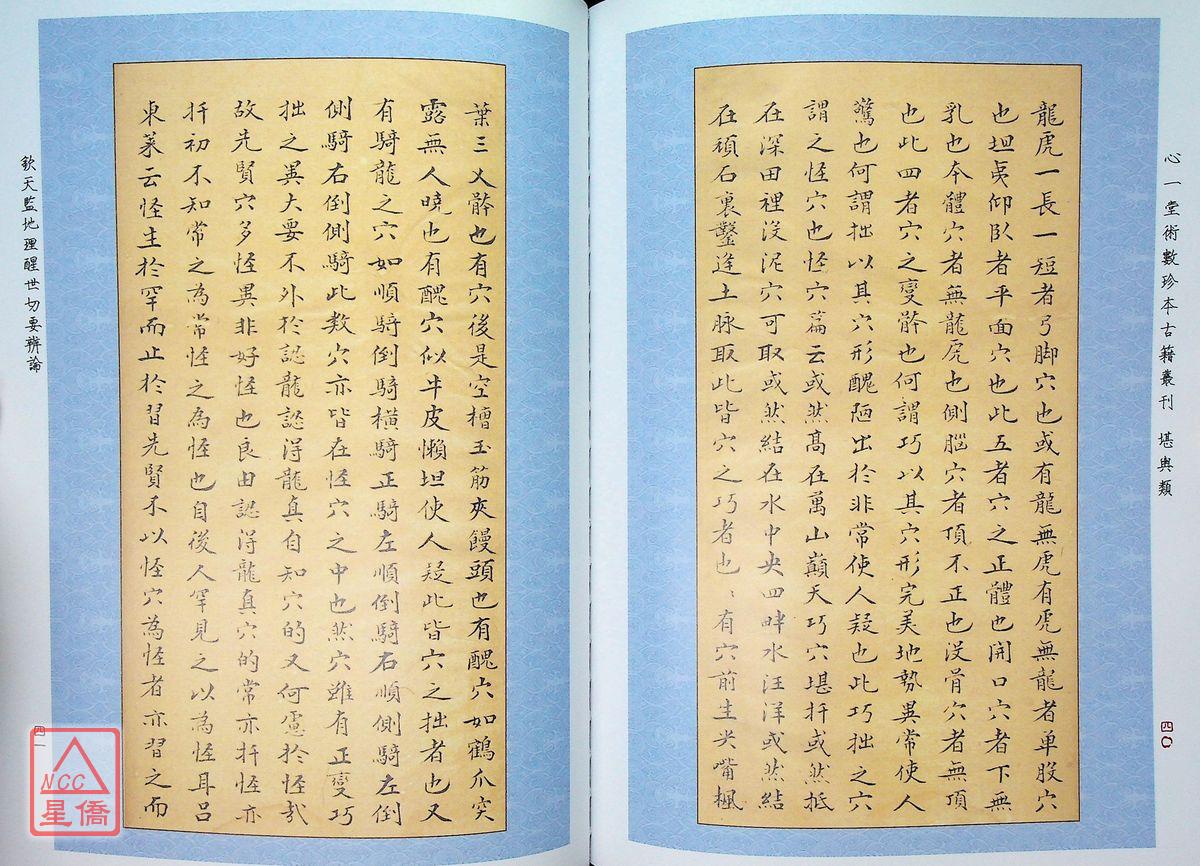 心一堂術數珍本古籍叢刊 堪輿類
四〇
龍虎一長一短者弓脚穴也或有龍無虎有虎無龍者單股穴
也坦夷仰臥者平面穴也此五者穴之正體也開口穴者下無
乳也本體穴者無龍虎也側腦穴者頂不正也沒骨穴者無頂
也此四者穴之變骵也何謂巧以其穴形完美地勢異常使人
驚也何謂拙以其穴形醜陋出於非常使人疑也此巧拙之穴
謂之怪穴也怪穴篇云或然高在萬山巔天巧穴堪扦或然抵
在深田裡沒泥穴可取或然結在水中央四畔水汪洋或然結
在頑石裏鑿逢土脉取此皆穴之巧者也、有穴前生尖嘴楓
葉三乂骵也有穴後是空槽玉筋夾饅頭也有醜穴如鶴爪突
露無人曉也有醜穴似牛皮懶坦使人疑此皆穴之拙者也又
有騎龍之穴如順騎倒騎橫騎正騎左順倒騎右順側騎左倒
側騎右倒側騎此数穴亦皆在怪穴之中也然穴雖有正變巧
拙之異大要不外於認龍認得龍真自知穴的又何慮於怪哉
故先賢穴多怪異非好怪也良由認得龍真穴的常亦扦怪亦
扦初不知常之為常怪之為怪也自後人罕見之以為怪耳呂
東萊云怪生於罕而止於習先賢不以怪穴為怪者亦習之而
欽天監地理醒世切要辨論
四一
NCC
星僑